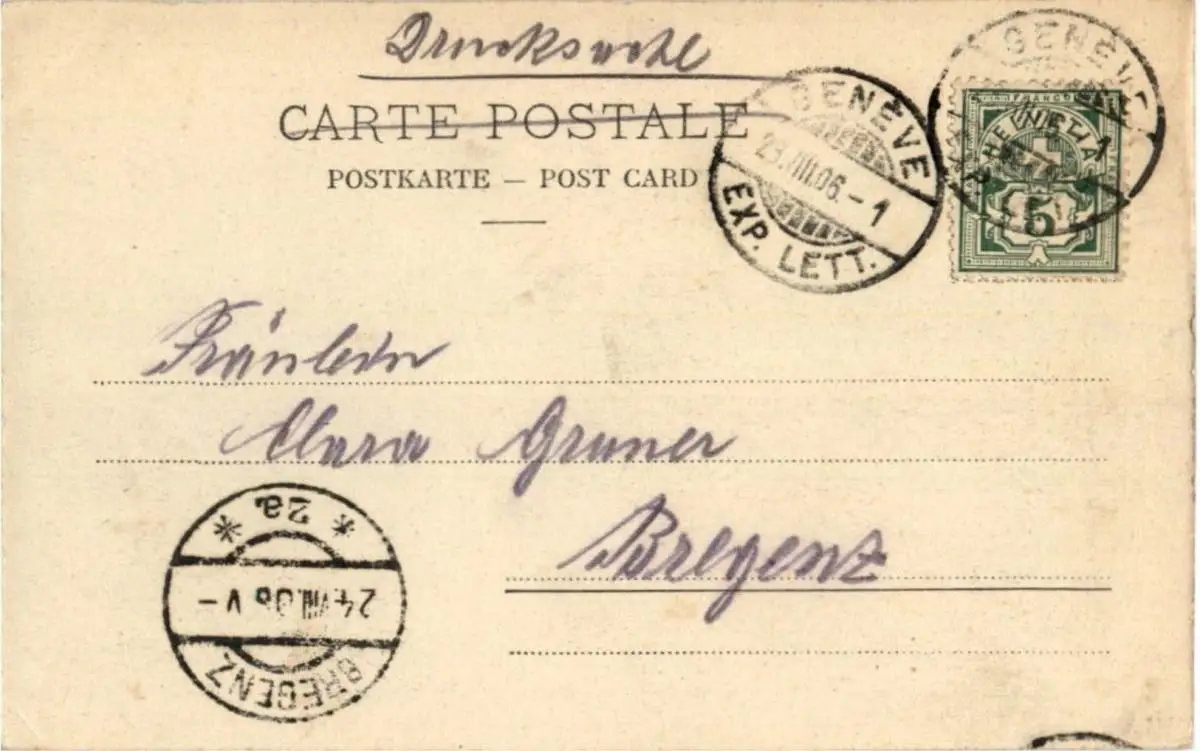 Drucksache
CARTE POSTALE
POSTKARTE – POST CARD
GENÈVE
23.VIII.06.–1
EXP. LETT.
GENÈVE
FRANCO
HELVETIA
5
Fräulein
Clara Gruner
Bregenz
* 2a *
24.VIII.06 V–
BREGENZ